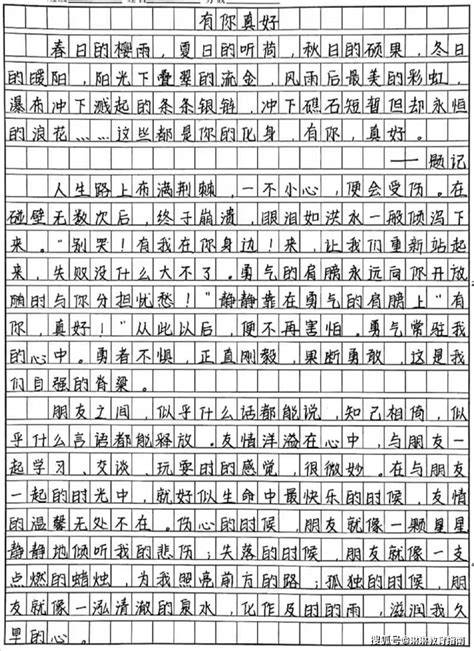 有你真好
春日的樱雨，夏日的听荷，秋日的硕果，冬日
的暖阳，阳光下叠翠的流金，风雨后最美的彩虹，
瀑布冲下溅起的条条银链，冲下礁石短暂但却永恒
的浪花……这些都是你的化身，有你，真好。
——题记
人生路上布满荆棘，一不小心，便会受伤。在
碰壁无数次后，终于崩溃，眼泪如洪水一般倾泻下
来。“别哭！有我在你身边！来，让我们重新站起
来，失败没什么大不了。勇气的肩膀永远向你开放
随时与你分担忧愁！”静静靠在勇气的肩膀上“有
你，真好！”从此以后，便不再害怕。勇气常驻我
的心中。勇者不惧，正直刚毅，果断勇敢，这是我
们自强的脊梁。
朋友之间，似乎什么话都能说，知己相倚，似
乎什么言语都能释放。友情洋溢在心中，与朋友一
起学习、交谈、玩耍时的感觉，很微妙。在与朋友
一起的时光中，就好似生命中最快乐的时候，友情
的温馨无处不在。伤心的时候，朋友就像一颗星星
静静地倾听我的悲伤；失落的时候，朋友就像一支
点燃的蜡烛，为我照亮前方的路；孤独的时候，朋
友就像一泓清澈的泉水，化作及时的雨，滋润我久
旱的心。
搜狐号@琳琳教育指南